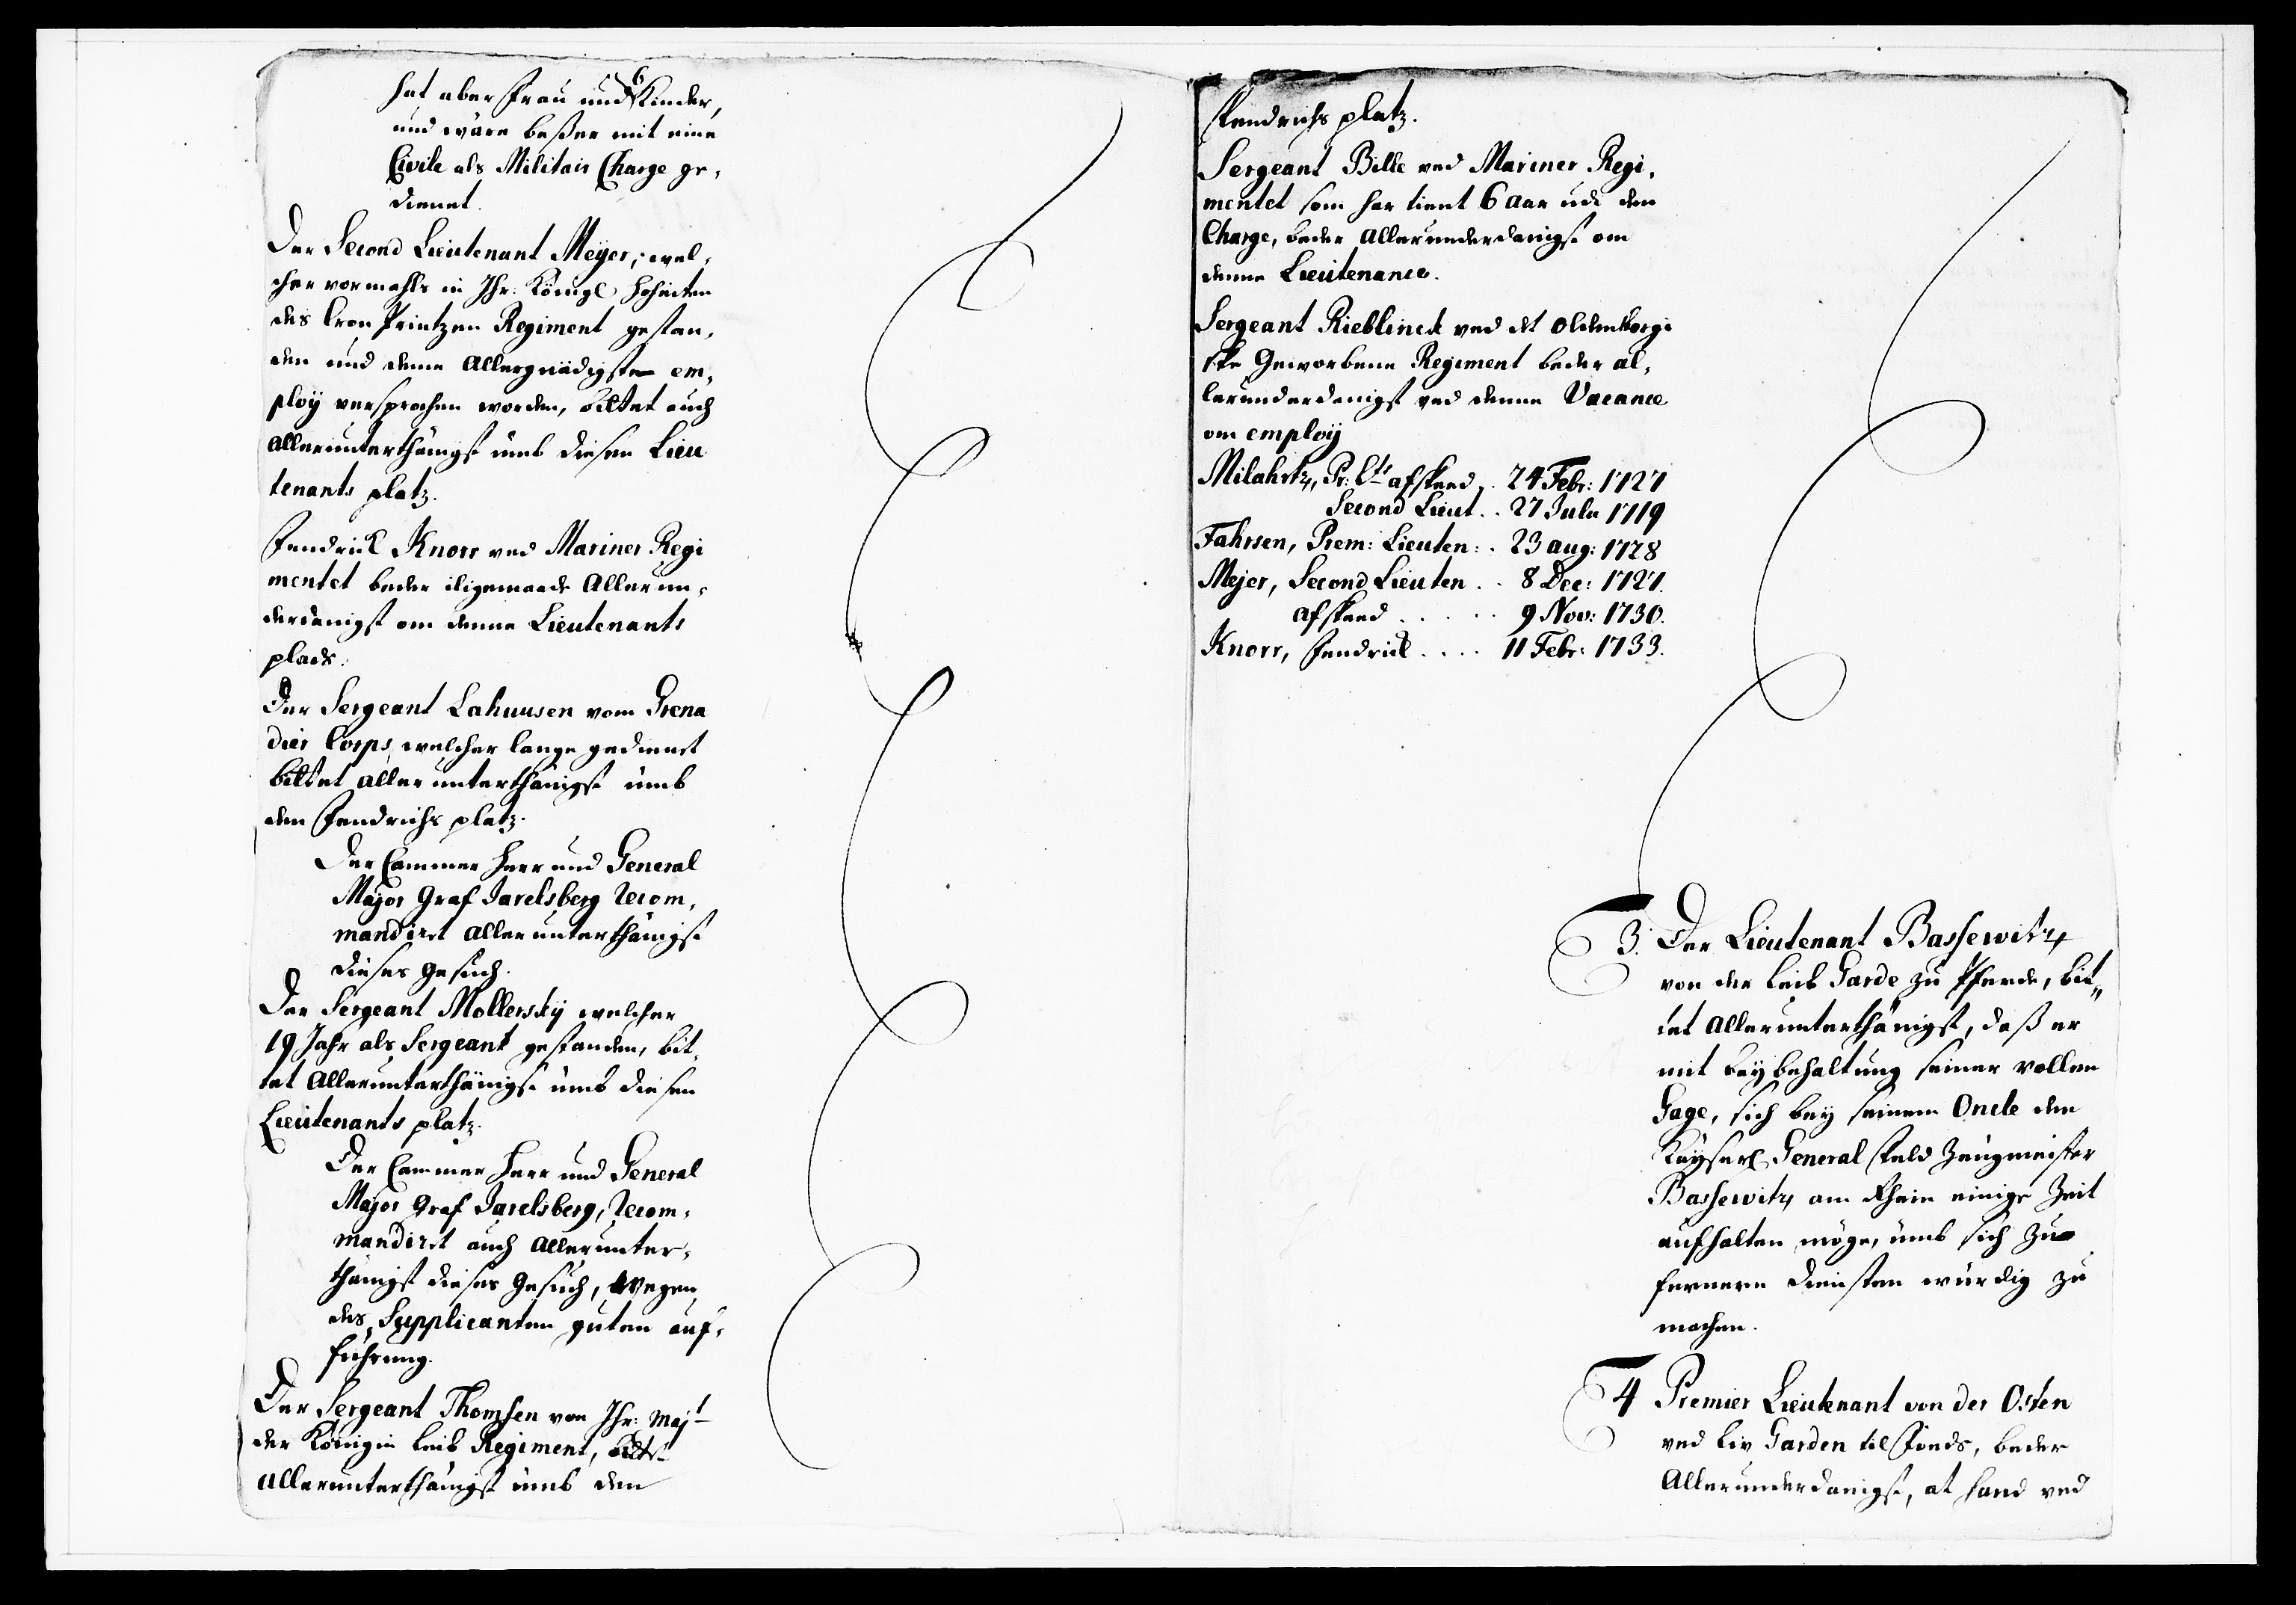 hat aber Frau und 6 Kinder,
und wäre beßer mit eine
Civile als Militair Charge ge,
dienet.
Der Second Lieutenant Meÿer, wel,
cher vormahls in Ihr: Königl Hoheiten
des Cron Printzen Regiment gestan,
den und deme Allergnädigste em,
ploÿ versprochen worden, bittet auch
Allerunterthänigst umb diesen Lieu
tenants platz.
Fendrick Knorr ved Mariner Regi
mentet beder iligemaade Allerun,
derdanigst om denne Lieutenants
plads.
Der Sergeant Lahuusen vom Grena
dier Corps, welcher lange gedienet
bittet allerunterthänigst umb
den Fendrichs platz.
Der Cammer Herr und General
Major Graf Jarelsberg recom,
mandiret allerunterthänigst
dieses Gesuch.
Der Sergeant Mollerskÿ welcher
19 Jahr als Sergeant gestanden, bit,
tet Allerunterthänigst umb diesen
Lieutenants platz.
Der Cammer Herr und General
Major Graf Jarelsberg, recom,
mandiret auch Allerunter,
thänigst dieses Gesuch, wegen
des Supplicanten guten auf,
führung.
Der Sergeant Thomsen von Ihr: Majt
der Königin Leib Regiment, bitt
allerunterthänigst umb den
Fendrichs platz.
Sergeant Bille ved Mariner Regi,
mentet som har tient 6 aar udi den
Charge, beder allerunderdanigst om
denne Lieutenance.
Sergeant Rieblinck ved det oldenborgi
ske Geworbene Regiment beder al,
lerunderdanigst ved denne Vacance
om emploÿ
Milahrtz, Pr: Lts afskeed . 24 Febr: 1727
Second Lieut . . 27 Julii 1719
Fahrsen, Prem: Lieuten: . 23 aug: 1728
Mejer, Second Lieuten . . 8 Dec: 1727.
afskeed . . . . . 9 Nov: 1730.
Knorr, Fendrick . . . . 11 Febr: 1733.
3. Der Lieutenant Bassewitz
von der Leib Garde zu Pferde, bit,,
tet Allerunterthänigst, daß er
mit beÿbehaltung seiner vollen
Gage, sich beÿ seinem Oncle den
Kaÿserl General Feld Zeugmeister
Bassewitz am Rhein einige Zeit
aufhalten möge, umb sich zu
fernern Diensten würdig zu
machen.
4 Premier Lieutenant von der Osten
ved Liv Garden til Foeds, beder
Allerunderdanigst, at hand ved